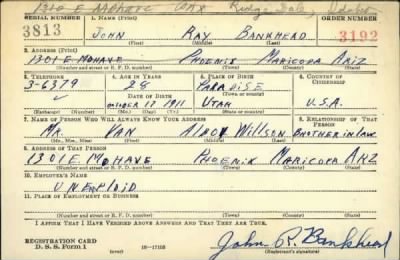 1310 E MOHAVE PHX Ridge Dale, Idaho
SERIAL NUMBER 1. NAME (Print) ORDER NUMBER
3813 JOHN RAY BANKHEAD 3192
(First) (Middle) (Last)
2. ADDRESS (Print)
1301 E MOHAVE PHOENIX MARICOPA ARIZ
(Number and street or R. F. D. number) (Town) (County) (State)
3. TELEPHONE 4. AGE IN YEARS 5. PLACE OF BIRTH 6. COUNTRY OF CITIZENSHIP
3-6379 28 PARADISE
DATE OF BIRTH (Town or county)
OCTOBER 17 1911 UTAH U.S.A.
(Exchange) (Number) (Mo.) (Day) (Yr.) (State or country)
7. NAME OF PERSON WHO WILL ALWAYS KNOW YOUR ADDRESS 8. RELATIONSHIP OF THAT PERSON
MR. VAN ALMON WILLSON BROTHER IN LAW
(Mr., Mrs., Miss) (First) (Middle) (Last)
9. ADDRESS OF THAT PERSON
1301 E. MOHAVE PHOENIX MARICOPA ARZ
(Number and street or R. F. D. number) (Town) (County) (State)
10. EMPLOYER'S NAME
UNEMPLOID
11. PLACE OF EMPLOYMENT OR BUSINESS
(Number and street or R. F. D. number) (Town) (County) (State)
I AFFIRM THAT I HAVE VERIFIED ABOVE ANSWERS AND THAT THEY ARE TRUE.
REGISTRATION CARD
D. S. S. Form 1 16—17105 John R. Bankhead
(Registrant's signature)